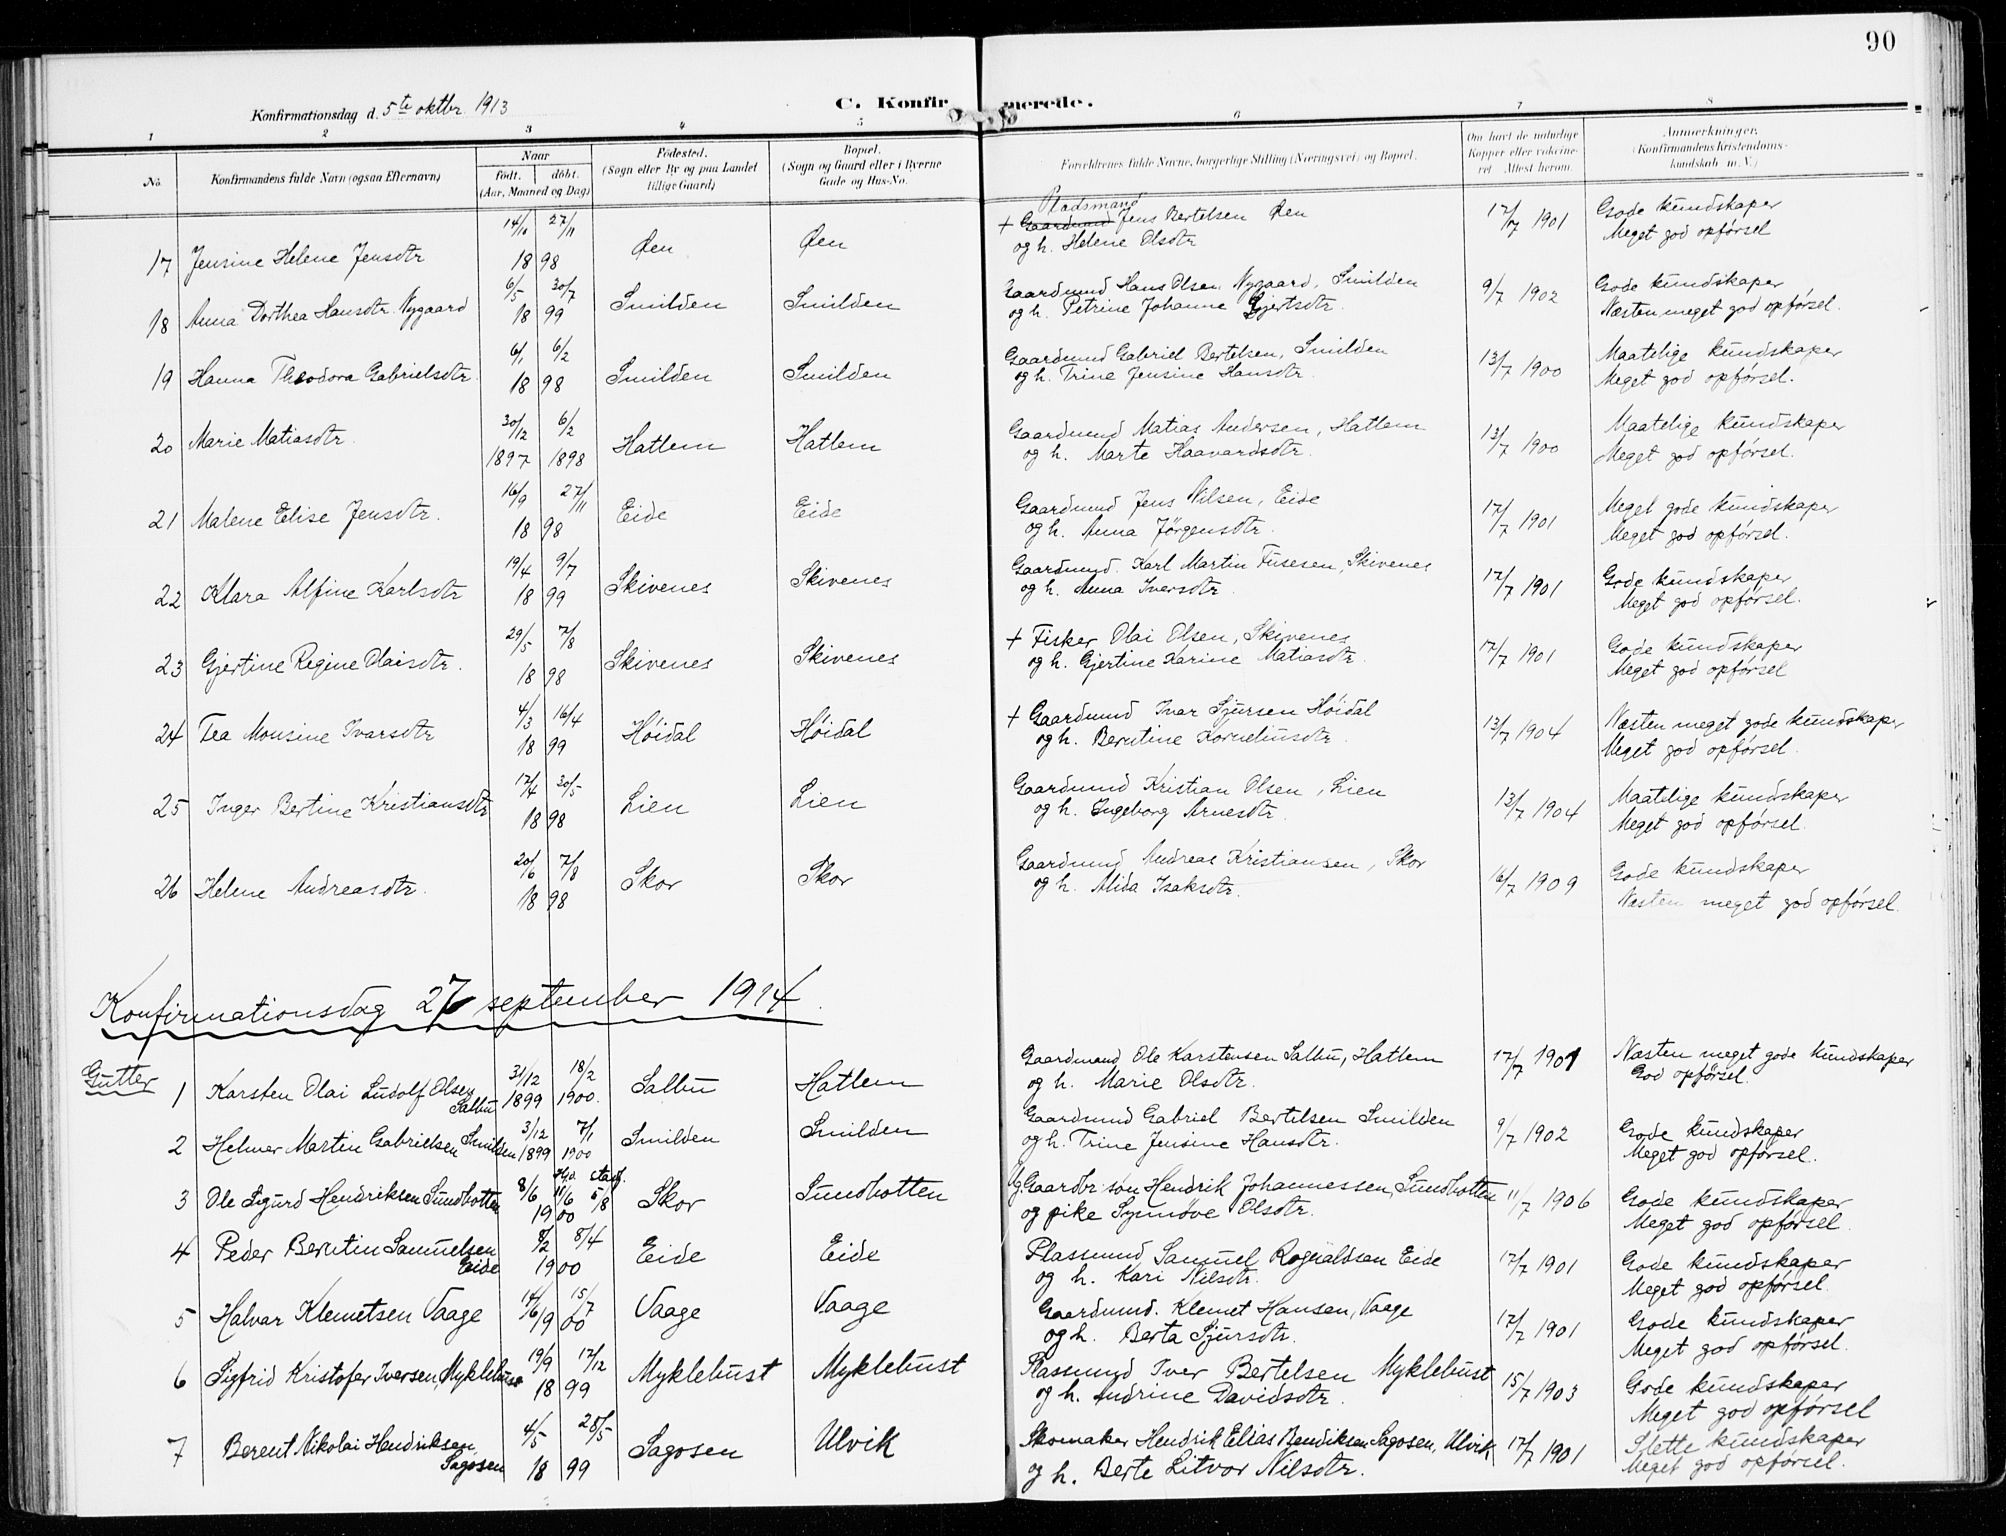 90
C. Konfirmerede.
Konfirmationsdag d. 5te oktbr. 1913
1 2 3 4 5 6 7 8
No.
Konfirmandens fulde Navn (ogsaa Efternavn)
Naar
födt. döbt.
(Aar, Maaned og Dag)
Födested.
(Sogn eller By og paa Landet
tillige Gaard)
Bopæl.
(Sogn og Gaard eller i Byerne
Gade og Hus-No.
Forældrenes fulde Navne, borgerlige Stilling (Næringsvei) og Bopæl.
Om havt de naturlige
Kopper eller vakcine-
ret Attest herom.
Anmærkninger.
(Konfirmandens Kristendoms-
kundskab m. V.)
17 Jensine Helene Jensdtr 14/10 27/11 1898 Øen Øen + Gaardmand Pladsmand Jens Bertelsen Øen 17/7 1901 Gode kundskaper
og h. Helene Olsdtr Meget god opförsel
18 Anna Dorthea Hansdtr. Nygaard 6/5 30/7 1899 Smilden Smilden Gaardmand Hans Olsen Nygaard, Smilden 9/7 1902 Gode kundskaper
og h. Petrine Johanne Gjertsdtr. Næsten meget god opförsel.
19 Hanna Theodora Gabrielsdtr. 6/1 6/2 1898 Smilden Smilden Gaardmand Gabriel Bertelsen, Smilden 13/7 1900 Maatelige kundskaper
og h. Trine Jensine Hansdtr. Meget god opförsel.
20 Marie Matiasdtr. 30/12 1897 6/2 1898 Hatlem Hatlem Gaardmand Matias Andersen, Hatlem 13/7 1900 Maatelige kundskaper
og h. Marte Haavardsdtr. Meget god opförsel.
21 Malene Elise Jensdtr. 16/9 27/11 1898 Eide Eide Gaardmand Jens Nilsen, Eide 17/7 1901 Meget gode kundskaper
og h. Anna Jörgensdtr. Meget god opförsel.
22 Klara Alfine Karlsdtr 19/4 9/7 1899 Skivenes Skivenes Gaardmand. Karl Martin Fusesen, Skivenes 17/7 1901 Gode kundskaper
og h. Anna Iversdtr. Meget god opförsel.
23 Gjertine Regine Olaisdtr. 29/5 7/8 1898 Skivenes Skivenes + Fisker Olai Olsen, Skivenes 17/7 1901 Gode kundskaper
og h. Gjertine Karine Matiasdtr. Meget god opförsel
24 Tea Monsine Ivarsdtr 4/3 16/4 1899 Höidal Höidal + Gaardmand Ivar Sjursen Höidal 13/7 1904 Næsten meget gode kundskaper
og h. Berntine Korneliusdtr. Meget god opförsel.
25 Inger Bertine Kristiansdtr 17/4 30/5 1898 Lien Lien Gaardmand Kristian Olsen, Lien 13/7 1904 Maatelige kundskaper
og h. Ingeborg Arnesdtr. Meget god opförsel.
26 Helene Andreasdtr. 20/6 7/8 1898 Skor Skor Gaardmand Andreas Kristiansen, Skor 16/7 1909 Gode kundskaper
og h. Alida Isaksdtr. Næsten meget god opförsel.
Konfirmationsdag 27 september 1914.
Gutter
1 Karsten Olai Ludolf Olsen Salbu 31/12 1899 18/2 1900. Salbu Hatlem Gaardmand Ole Karstensen Salbu, Hatlem 17/7 1901 Næsten meget gode kundskaper
og h. Marie Olsdtr. God opförsel.
2 Helmer Martin Gabrielsen Smilden 3/12 1899 7/1 1900 Smilden Smilden Gaardmand Gabriel Bertelsen Smilden 9/7 1902 Gode kundskaper
og h. Trine Jensine Hansdtr. Meget god opförsel.
3 Ole Sigurd Hendriksen Sundbotten 8/6 Hjd. 11/6 stadf. 5/8 1900 Skor Sundbotten Ug. Gaardbr. sön Hendrik Johannessen, Sundbotten 11/7 1906 Gode kundskaper
og pike Synnöve Olsdtr. Meget god opförsel.
4 Peder Berntin Samuelsen Eide 8/2 8/4 1900 Eide Eide Plassmand Samuel Rognaldsen Eide 17/7 1901 Gode kundskaper
og h. Kari Nilsdtr. Meget god opförsel.
5 Halvar Klemetsen Vaage 14/6 15/7 1900 Vaage Vaage Gaardmand. Klemet Hansen, Vaage 17/7 1901 Gode kundskaper
og h. Berta Sjursdtr. Meget god opförsel.
6 Sigfrid Kristofer Iversen, Myklebust 19/9 17/12 1899 Myklebust Myklebust Plassmand Iver Bertelsen Myklebust 15/7 1903 Gode kundskaper
og h. Andrine Davidsdtr. Meget god opförsel
7 Berent Nikolai Hendriksen Sagosen 4/5 28/5 1899 Sagosen Ulvik Skomaker Hendrik Elias Bendiksen Sagosen, Ulvik 17/7 1901 Slette kundskaper
og h. Berte Litvor Nilsdtr. Meget god opförsel.